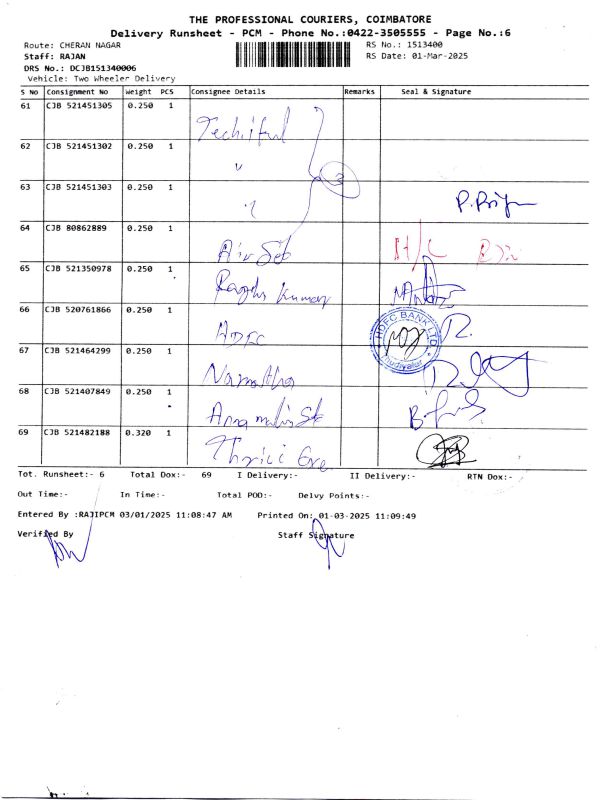 THE PROFESSIONAL COURIERS, COIMBATORE
Delivery Runsheet - PCM - Phone No.:0422-3505555 - Page No.:6
Route: CHERAN NAGAR RS No.: 1513400
Staff: RAJAN RS Date: 01-Mar-2025
DRS No.: DCJB151340006
Vehicle: Two Wheeler Delivery
S No Consignment No Weight PCS Consignee Details Remarks Seal & Signature
61 CJB 521451305 0.250 1
62 CJB 521451302 0.250 1 "
63 CJB 521451303 0.250 1 "
64 CJB 80862889 0.250 1
65 CJB 521350978 0.250 1 Kumar
66 CJB 520761866 0.250 1 HDFC HDFC BANK LTD.
67 CJB 521464299 0.250 1 Namratha
68 CJB 521407849 0.250 1
69 CJB 521482188 0.320 1
Tot. Runsheet:- 6 Total Dox:- 69 I Delivery:- II Delivery:- RTN Dox:-
Out Time:- In Time:- Total POD:- Delvy Points:-
Entered By :RAJIPCM 03/01/2025 11:08:47 AM Printed On: 01-03-2025 11:09:49
Verified By Staff Signature